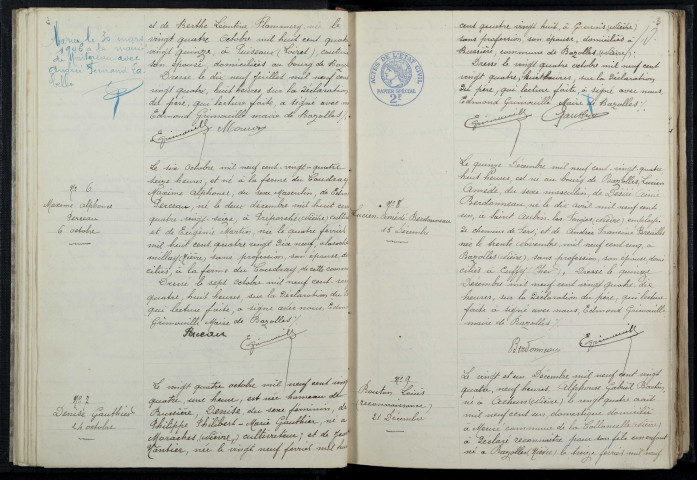 et de Berthe Léontine Flammery née le
vingt quatre Octobre mil huit cent quatre
vingt quinze, à Puiseau (Loiret), couturière
son épouse, domiciliés au bourg de Bazolles
Dressé le dix neuf juillet mil neuf cent
vingt quatre, huit heures, sur la déclaration
du père, qui lecture faite, a signé avec nous
Edmond Grimouille maire de Bazolles /.
No 6
Maxime Alphonse
Perceau
6 octobre
Le six Octobre mil neuf cent vingt-quatre
seize heures, est né à la ferme du Coudray
Maxime Alphonse, du sexe Masculin, de
Perceau, né le deux décembre mil huit cent
quatre vingt seize, à
et de Eugénie Martin, née le quatre février
mil huit cent quatre vingt dix neuf, à
(Nièvre), sans profession, son épouse
ciliés, à la ferme du Coudray de cette commune
Dressé le sept octobre mil neuf cent vingt
quatre, huit heures, sur la déclaration du
qui lecture faite, a signé avec nous,
Grimouille, Maire de Bazolles /.
Perceau
No 7
Denise Gauthier
24 octobre
Le vingt quatre octobre mil neuf cent vingt
quatre, une heure, est née hameau de
Bussière, Denise du sexe féminin, de
Philippe Philibert-Marie Gauthier, né à
(Nièvre), cultivateur; et de
née le vingt neuf février mil huit
ACTES DE L'ETAT CIVIL
PAPIER SPECIAL
2F
cent quatre vingt huit, à (Nièvre)
sans profession, son épouse, domiciliés à
Bussière, commune de Bazolles (Nièvre) /.
Dressé le vingt quatre octobre mil neuf cent
vingt quatre, huit heures, sur la déclaration
du père, qui lecture faite, a signé avec nous,
Edmond Grimouille Maire de Bazolles /.
Gauthier
No 8
Lucien Amédé Berdonneau
15 Décembre
Le quinze Décembre mil neuf cent vingt quatre
huit heures, est né au bourg de Bazolles, Lucien
Amédé du sexe masculin, de
Berdonneau, né le dix août mil neuf cent
un, à Saint Aubin les Forges (Nièvre) employé
de chemins de fer, et de
née le trente Novembre mil neuf cent cinq, à
Bazolles (Nièvre) sans profession, son épouse, domi-
ciliés à Cuffy (Cher) /. Dressé le quinze
Décembre mil neuf cent vingt quatre, dix
heures, sur la déclaration du père, qui lecture
faite a signé avec nous, Edmond Grimouille
maire de Bazolles /.
Berdonneau
No 9
Louis
reconnaissance
21 Décembre
Le vingt et un Décembre mil neuf cent vingt
quatre, neuf heures, Alphonse
né à Achun (Nièvre) le vingt quatre août
mil neuf cent un, domestique domicilié
à commune de La Collancelle (Nièvre)
a déclaré reconnaître pour son fils un enfant
né à Bazolles (Nièvre) le treize février mil neuf